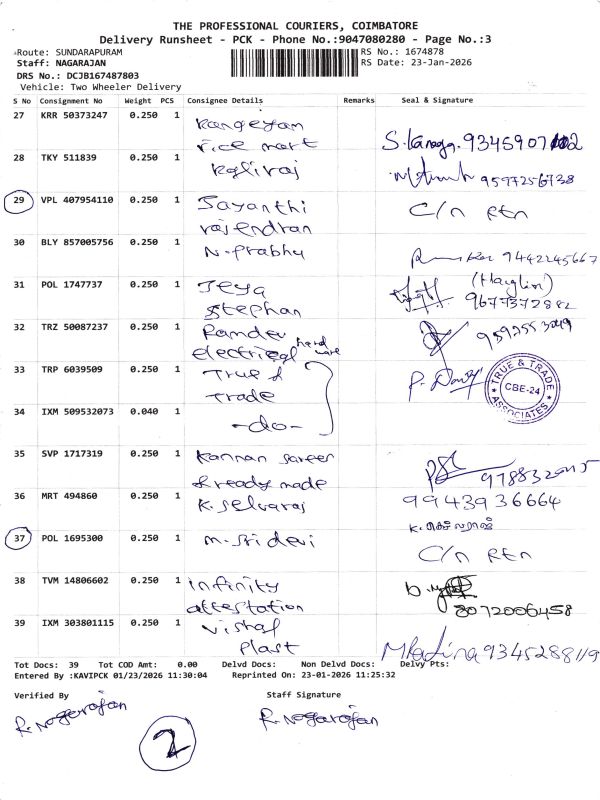 THE PROFESSIONAL COURIERS, COIMBATORE
Delivery Runsheet - PCK - Phone No.:9047080280 - Page No.:3
Route: SUNDARAPURAM
RS No.: 1674878
Staff: NAGARAJAN
RS Date: 23-Jan-2026
DRS No.: DCJB167487803
Vehicle: Two Wheeler Delivery
S No Consignment No Weight PCS Consignee Details Remarks Seal & Signature
27 KRR 50373247 0.250 1 Kangeyam
rice mart
28 TKY 511839 0.250 1 Kaliraj
9597256738
29 VPL 407954110 0.250 1 Jayanthi C/n Rtn
rajendran
30 BLY 857005756 0.250 1 N. Prabhu 9442245667
31 POL 1747737 0.250 1 Jeya
Stephan 9677372882
32 TRZ 50087237 0.250 1 Ramdev
electrical hard ware
33 TRP 6039509 0.250 1 True &
Trade
TRUE & TRADE ASSOCIATES CBE-24
34 IXM 509532073 0.040 1 -do-
35 SVP 1717319 0.250 1 Kannan saree
& ready made
36 MRT 494860 0.250 1 K. Selvaraj 9943936664
37 POL 1695300 0.250 1 M. Sri devi C/n Rtn
38 TVM 14806602 0.250 1 infinity
attestation 8072006458
39 IXM 303801115 0.250 1 Vishal
Plast 9345288119
Tot Docs: 39 Tot COD Amt: 0.00 Delvd Docs: Non Delvd Docs: Delvy Pts:
Entered By :KAVIPCK 01/23/2026 11:30:04 Reprinted On: 23-01-2026 11:25:32
Verified By Staff Signature
R. Nagarajan R. Nagarajan
2